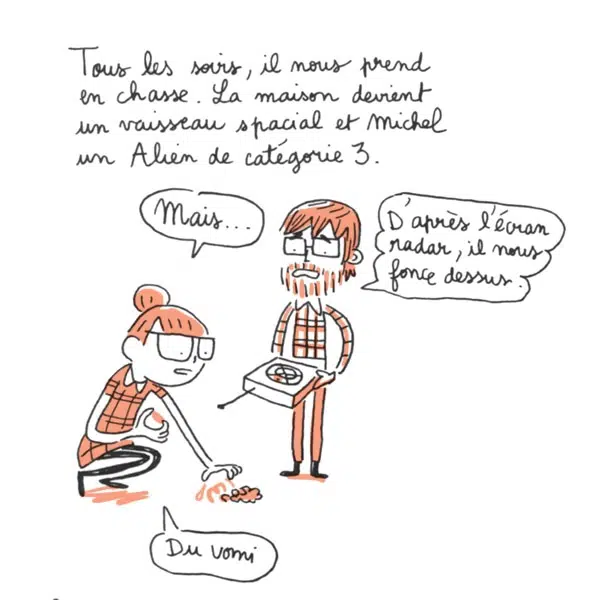 Tous les soirs, il nous prend
en chasse. La maison devient
un vaisseau spacial et Michel
un Alien de catégorie 3.
Mais...
D'après l'écran
radar, il nous
fonce dessus.
Du vomi